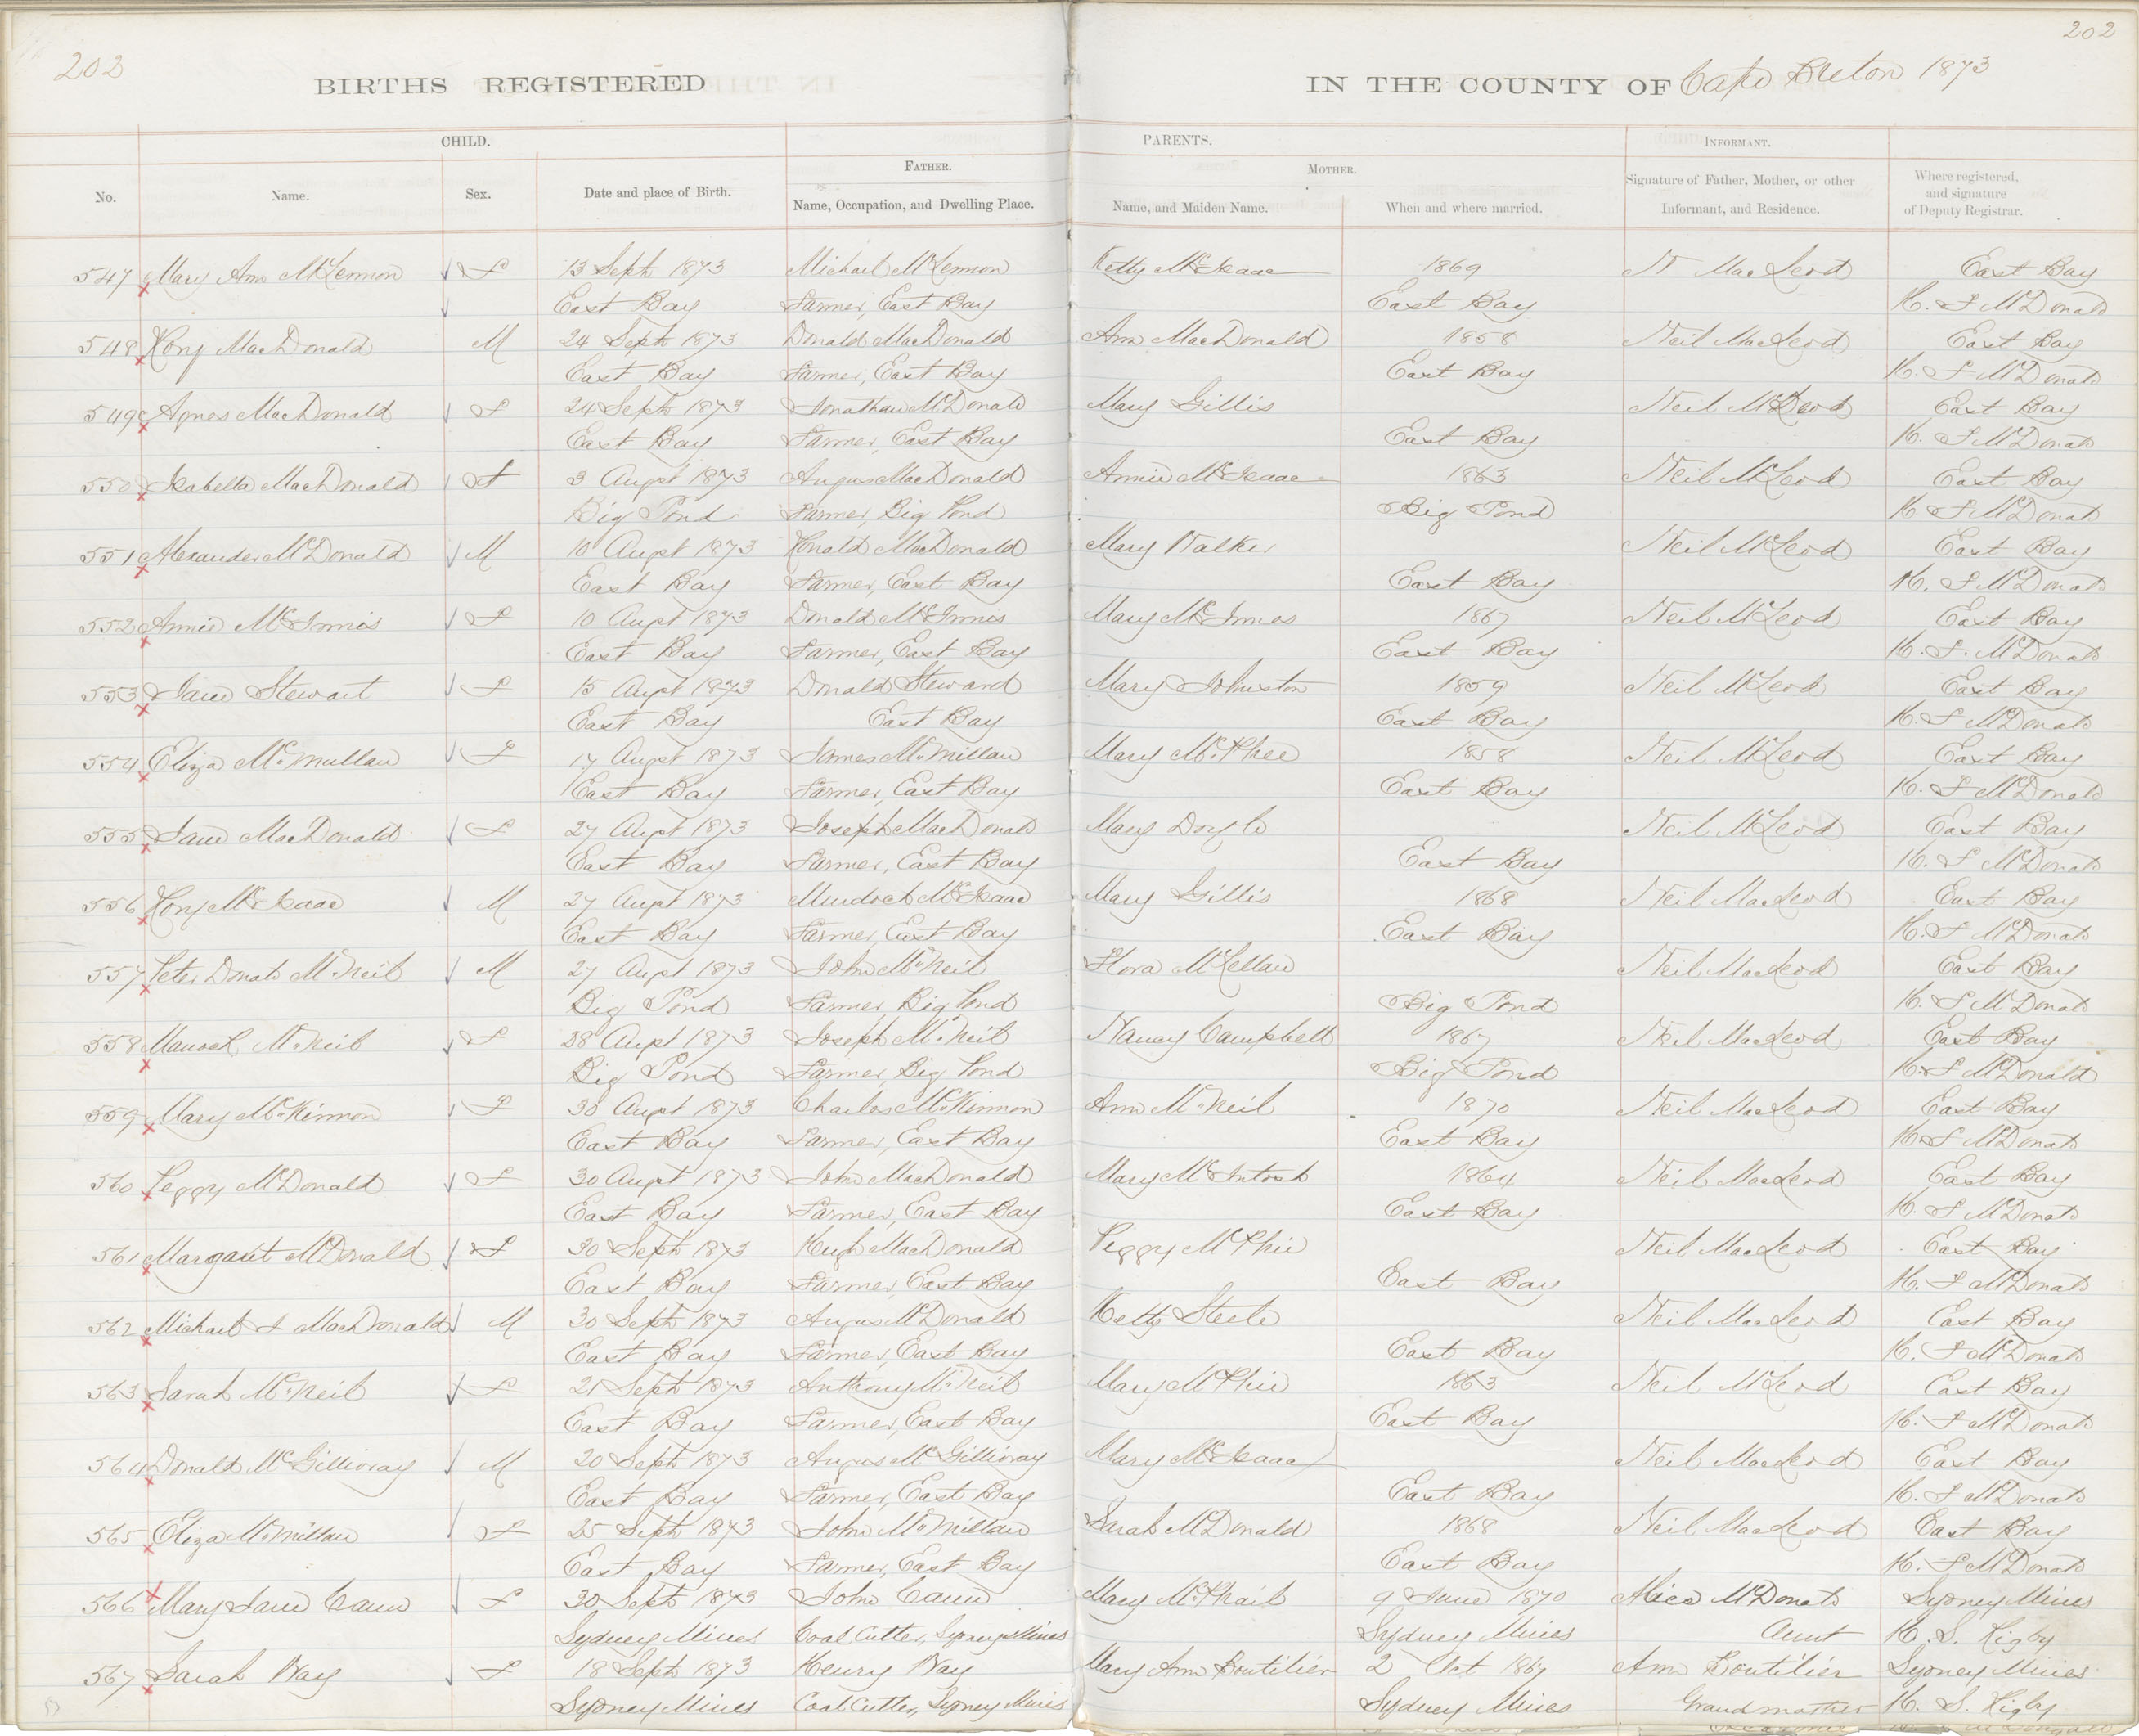 202
202
BIRTHS REGISTERED IN THE COUNTY OF Cape Breton 1873
CHILD. PARENTS. INFORMANT.
FATHER. MOTHER.
No. Name. Sex. Date and place of Birth. Name, Occupation, and Dwelling Place. Name, and Maiden Name. When and where married. Signature of Father, Mother, or other Informant, and Residence. Where registered, and signature of Deputy Registrar.
547 Mary Ann McLennon F 13 Sept 1873 Michael McLennon Ketty McIsaac 1869 N MacLeod East Bay
East Bay Farmer, East Bay East Bay H. F McDonald
548 Rory MacDonald M 24 Sept 1873 Donald MacDonald Ann MacDonald 1858 Neil MacLeod East Bay
East Bay Farmer, East Bay East Bay H. F McDonald
549 Agnes MacDonald F 24 Sept 1873 Jonathan McDonald Mary Gillis Neil McLeod East Bay
East Bay Farmer, East Bay East Bay H. F McDonald
550 Isabella MacDonald F 3 Augst 1873 Angus MacDonald Annie McIsaac 1863 Neil McLeod East Bay
Big Pond Farmer, Big Pond Big Pond H. F McDonald
551 Alexander McDonald M 10 Augst 1873 Ronald MacDonald Mary Walker Neil McLeod East Bay
East Bay Farmer, East Bay East Bay H. F McDonald
552 Annie McInnis F 10 Augst 1873 Donald McInnis Mary McInnes 1867 Neil McLeod East Bay
East Bay Farmer, East Bay East Bay H. F. McDonald
553 Jane Stewart F 15 Augst 1873 Donald Steward Mary Johnston 1859 Neil McLeod East Bay
East Bay East Bay East Bay H. F McDonald
554 Eliza McMullan F 17 Augst 1873 James McMillan Mary McPhee 1858 Neil McLeod East Bay
East Bay Farmer, East Bay East Bay H. F McDonald
555 Jane MacDonald F 27 Augst 1873 Joseph MacDonald Mary Doyle Neil McLeod East Bay
East Bay Farmer, East Bay East Bay H. F McDonald
556 Rory McIsaac M 27 Augst 1873 Murdoch McIsaac Mary Gillis 1868 Neil MacLeod East Bay
East Bay Farmer, East Bay East Bay H. F McDonald
557 Peter Donald McNeil M 27 Augst 1873 John McNeil Flora McLellan Neil MacLeod East Bay
Big Pond Farmer, Big Pond Big Pond H. F McDonald
558 McNeil F 28 Augst 1873 Joseph McNeil Nancy Campbell 1867 Neil MacLeod East Bay
Big Pond Farmer, Big Pond Big Pond H. F McDonald
559 Mary McKinnon F 30 Augst 1873 Charles McKinnon Ann McNeil 1870 Neil MacLeod East Bay
East Bay Farmer, East Bay East Bay H. F McDonald
560 Peggy McDonald F 30 Augst 1873 John MacDonald Mary McIntosh 1864 Neil MacLeod East Bay
East Bay Farmer, East Bay East Bay H. F McDonald
561 Margaret McDonald F 30 Sept 1873 Hugh MacDonald Peggy McPhie Neil MacLeod East Bay
East Bay Farmer, East Bay East Bay H. F McDonald
562 Michael J MacDonald M 30 Sept 1873 Angus McDonald Ketty Steele Neil MacLeod East Bay
East Bay Farmer, East Bay East Bay H. F McDonald
563 Sarah McNeil F 21 Sept 1873 Anthony McNeil Mary McPhie 1863 Neil McLeod East Bay
East Bay Farmer, East Bay East Bay H. F McDonald
564 Donald McGillivray M 20 Sept 1873 Angus McGillivray Mary McIsaac Neil MacLeod East Bay
East Bay Farmer, East Bay East Bay H. F McDonald
565 Eliza McMillan F 25 Sept 1873 John McMillan Sarah McDonald 1868 Neil MacLeod East Bay
East Bay Farmer, East Bay East Bay H. F McDonald
566 Mary Jane Cann F 30 Sept 1873 John Cann Mary McPhail 9 June 1870 Alice McDonald Sydney Mines
Sydney Mines Coal Cutter, Sydney Mines Sydney Mines Aunt H. S. Rigby
567 Sarah Way F 18 Sept 1873 Henry Way Mary Ann Boutilier 2 Oct 1867 Ann Boutilier Sydney Mines
Sydney Mines Coal Cutter, Sydney Mines Sydney Mines Grandmother H. S. Rigby